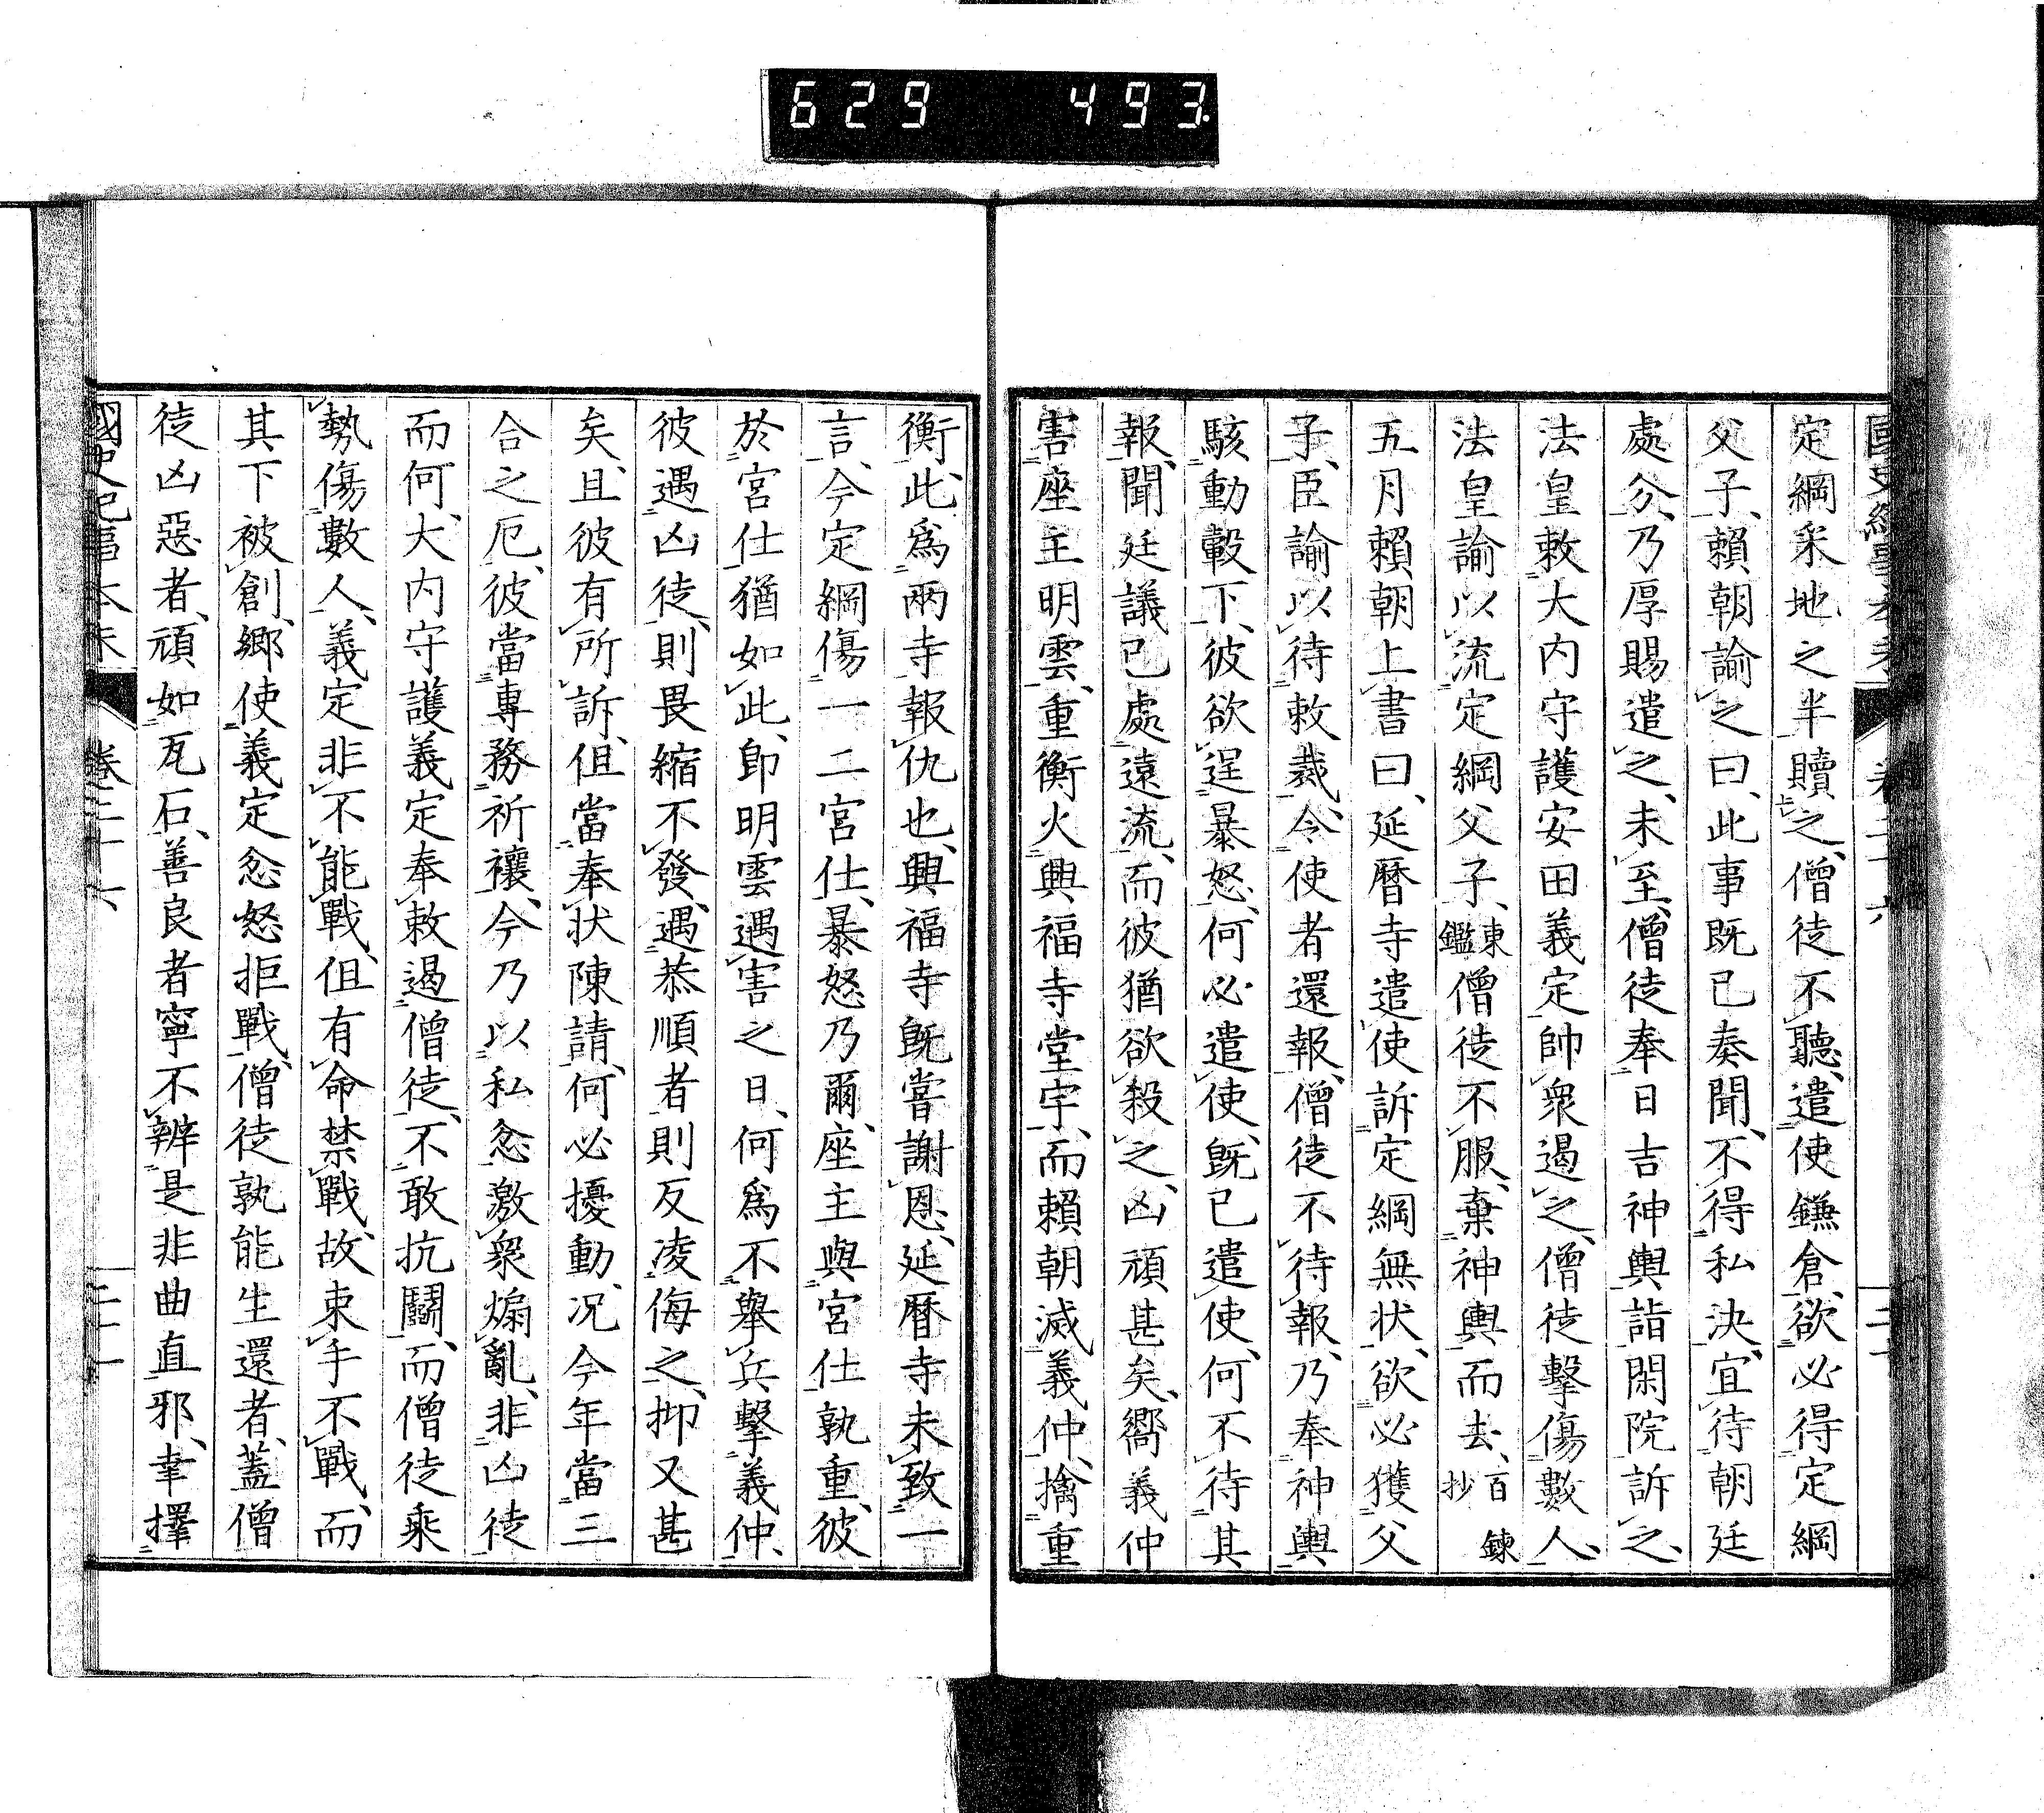 629 493
定綱釆地之半贖之、僧徒不聽、遣使鎌倉、欲必得定綱
父子、賴朝諭之曰、此事既已奏聞、不得私決、宜待朝廷
處分、乃厚賜遣之、未至、僧徒奉日吉神輿詣閑院訴之、
法皇敕大内守護安田義定帥衆遏之、僧徒擊傷數人、
法皇諭以流定綱父子、東鑑僧徒不服、棄神輿而去、百鍊抄
五月賴朝上書曰、延曆寺遣使訴定綱無狀、欲必獲父
子、臣諭以待敕裁、令使者還報、僧徒不待報、乃奉神輿
駭動轂下、彼欲逞暴怒、何必遣使、既已遣使、何不待其
報、聞廷議已處遠流、而彼猶欲殺之、凶頑甚矣、嚮義仲
害座主明雲、重衡火興福寺堂宇、而賴朝滅義仲、擒重
衡、此爲兩寺報仇也、興福寺既嘗謝恩、延曆寺未致一
言、今定綱傷一二宮仕、暴怒乃爾、座主與宮仕孰重、彼
於宮仕猶如此、卽明雲遇害之日、何爲不擧兵擊義仲、
彼遇凶徒、則畏縮不發、遇恭順者則反凌侮之、抑又甚
矣、且彼有所訴、但當奉狀陳請、何必擾動、况今年當三
合之厄、彼當專務祈禳、今乃以私忿激衆煽亂、非凶徒
而何、大内守護義定奉敕遏僧徒、不敢抗鬭、而僧徒乘
勢傷數人、義定非不能戰、但有命禁戰、故束手不戰、而
其下被創、鄉使義定忿怒拒戰、僧徒孰能生還者、蓋僧
徒凶惡者、頑如瓦石、善良者寧不辨是非曲直邪、幸擇
國史紀事本末 卷二十六 二十一